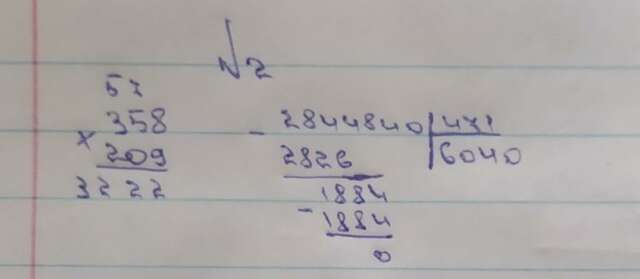 №2
57
358
× 209
3222
- 2844840 | 471
2826 | 6040
1884
- 1884
0